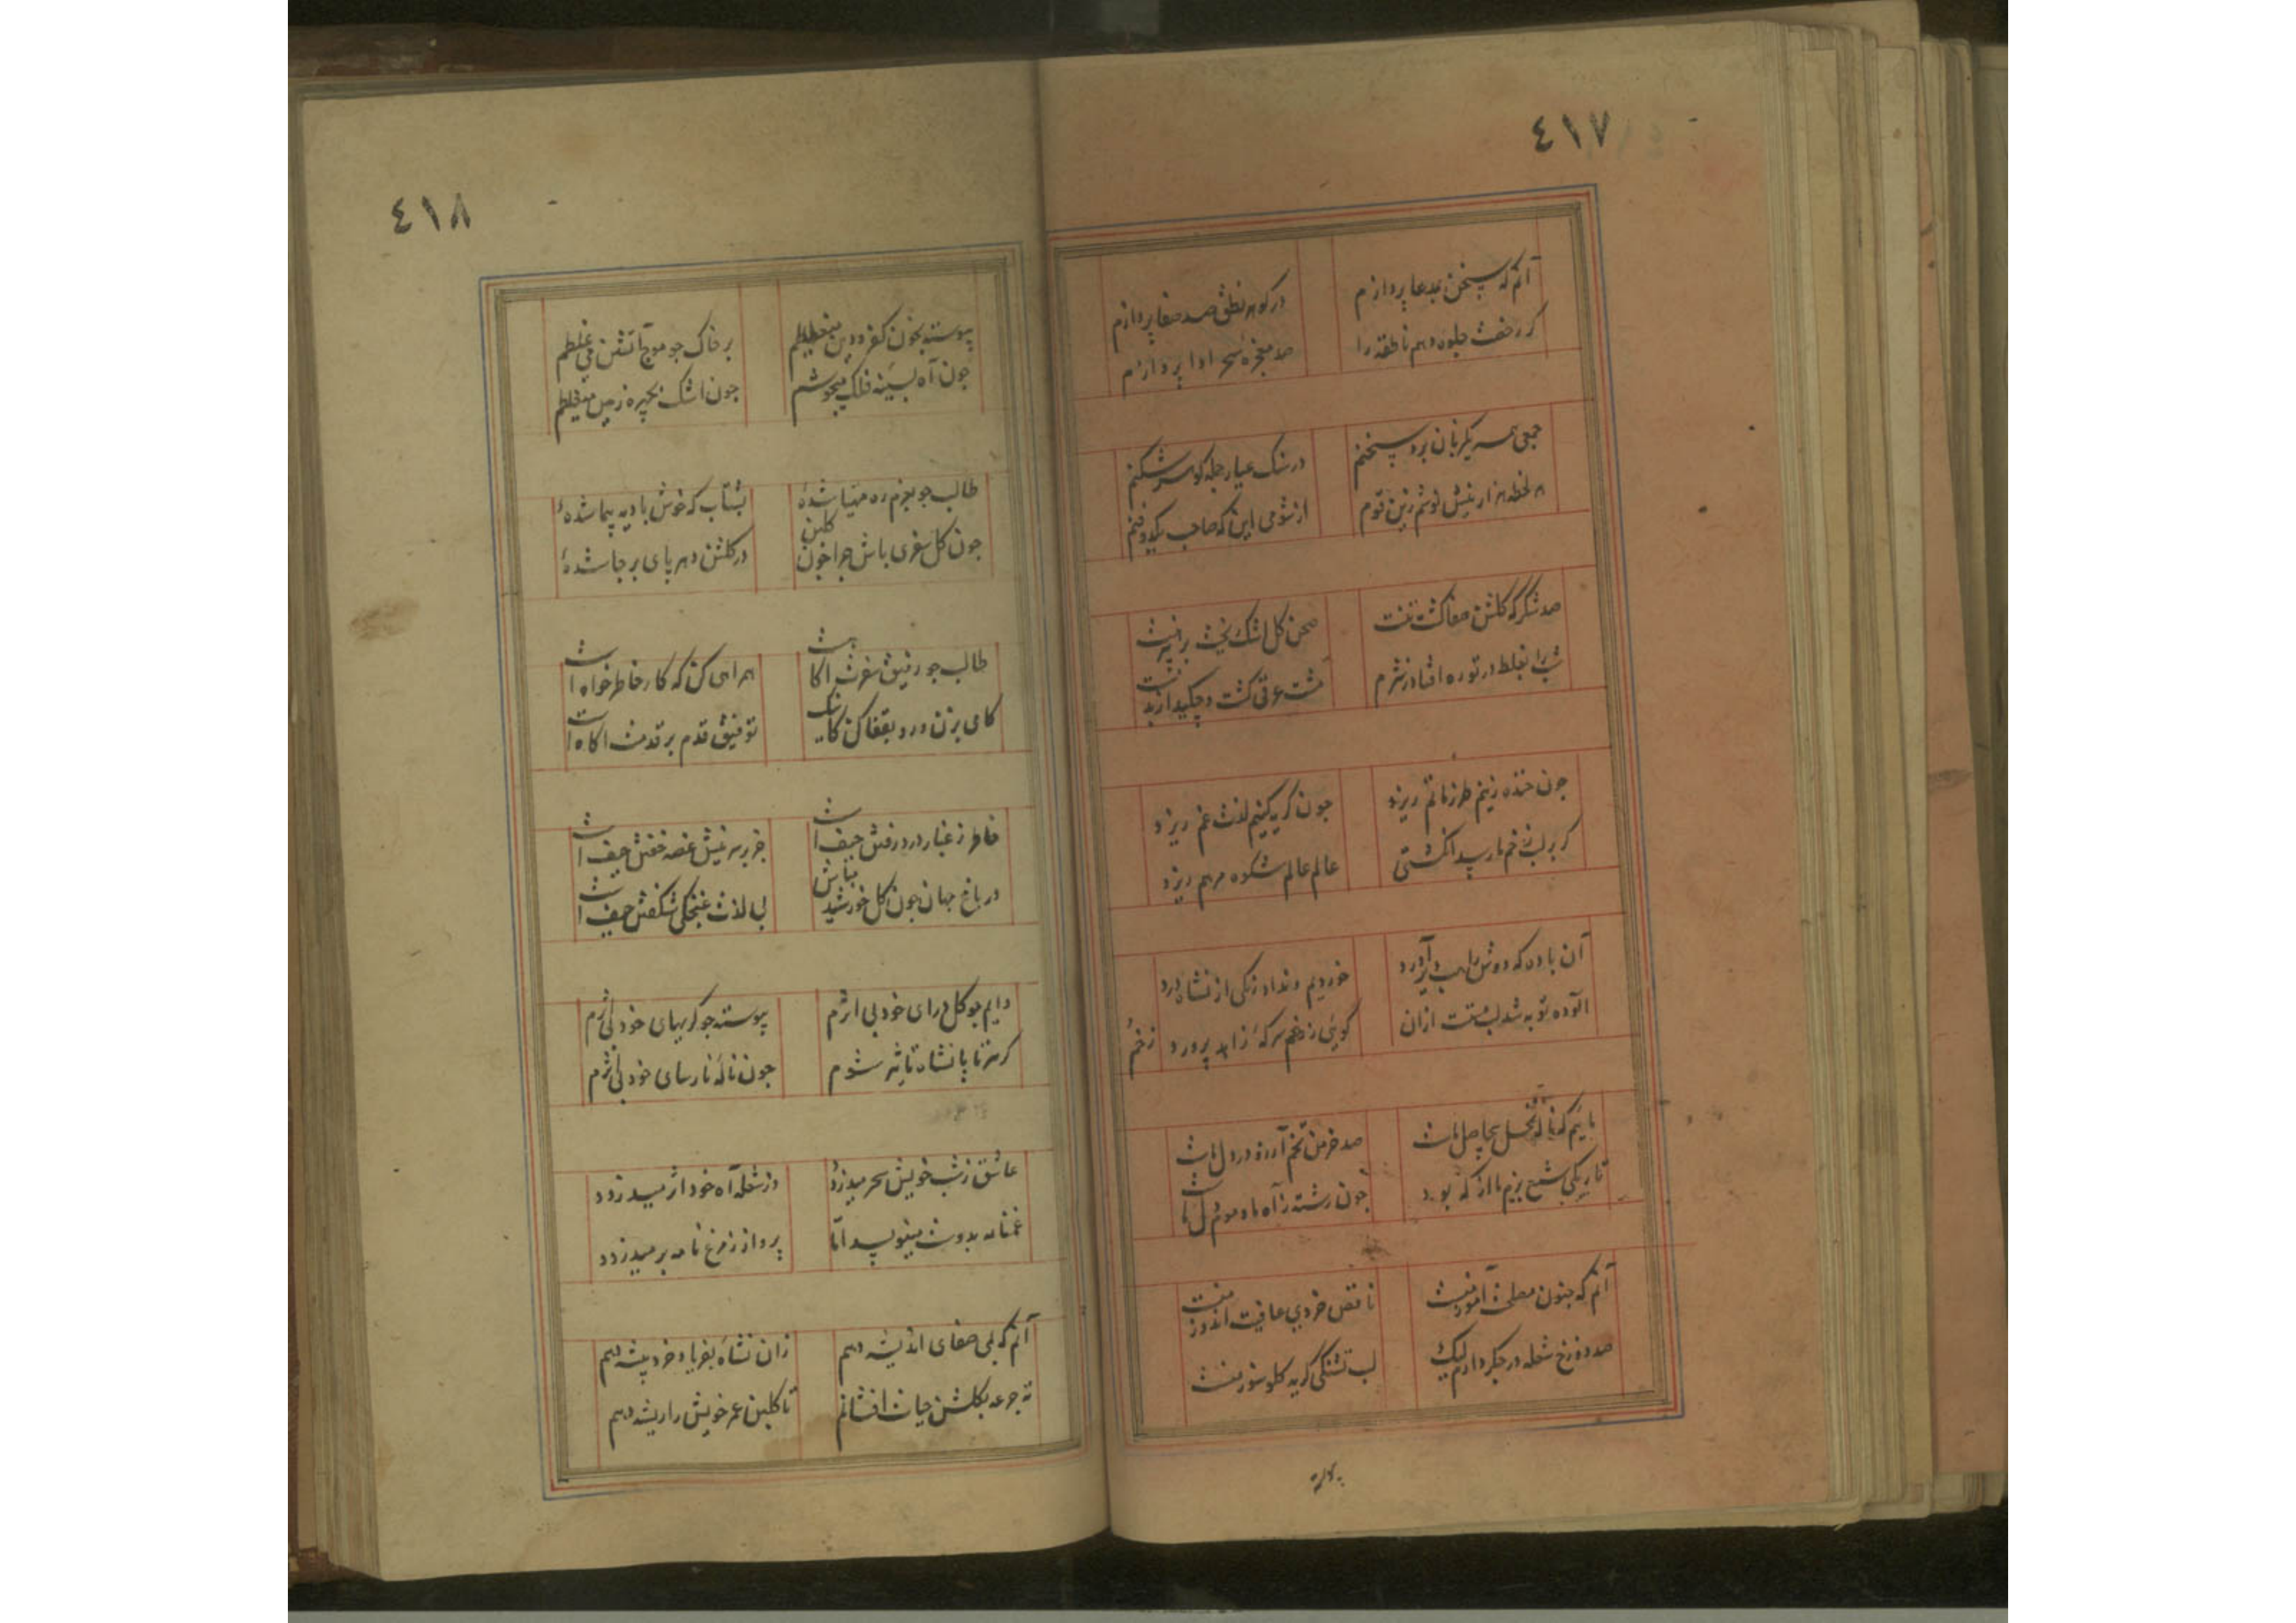 ٤١٧
آنم که سخن بمدعا پردازم
در گوهر نطق صد صفا پردازم
کر رخصت جلوه دهم ناطقه را
صد معجزه سحر ادا پردازم
جمعی همه یکزبان برد سخنم
در سنک عیار جمله کوهر شکنم
هر لحظه هزار نیش نوشم زین قوم
از شومی این که صاحب یکدو فنم
صد شکر که گلشن صفا کشت تنت
صحن کل اشک ریخت بر پیرهنت
شب را بغلط در تو ره افتاد ز شرم
کشت عرق کشت و چکید از بدنت
چون خنده زنیم طرز ماتم ریزد
چون کریه کنیم لذت غم ریزد
کر بر لب زخم ما رسد انکشتی
عالم عالم شکوه مرهم ریزد
آن باده که دوش را هب دیر آورد
خوردیم و نداد رنکی از نشاه درد
آلوده توبه شد لب مست ازان
کویی ز خم سرکه زاهد پرورد
مائیم که ناله نخل بیحاصل ماست
صد خرمن تخم آرزو در دل ماست
تاریکی شمع بزم ما از که بود
چون رشته ز آه ما و موم از دل ماست
آنم که جنون مصلحت آموز منست
ناقص خردی عافیت اندوز منست
صد دوزخ شعله در جکر دارم لیک
لب تشنکی کریه کلوسوز منست
٤١٨
پیوسته بخون کفر و دین میغلطم
بر خاک چو موج آتشین می غلطم
چون آه بسینه فلک میجوشم
چون اشک بچهره زمین میغلطم
طالب چو بعزم ره مهیا شدهٔ
بشتاب که خوش بادیه پیما شدهٔ
چون کل سفری باش چرا چون کلبن
در کلشن دهر پای بر جا شدهٔ
طالب چو رفیق سفرت اکاهست
همراهی کن که کار خاطر خواه است
کامی بزن و رو بقفا کن کاینک
توفیق قدم بر قدمت اکاه است
خاطر ز غبار درد رفتن حیف است
جز بر سر نیش غصه خفتن حیف است
در باغ جهان چون کل خورشید مباش
بی لذت غنچکی شکفتن حیف است
دایم چو کل درای خود بی اثرم
پیوسته چو کریهای خود بی اثرم
کر سر تا پا نشاه تاثیر شوم
چون ناله نارسای خود بی اثرم
عاشق ز شب خویش سحر میدزدد
وز شعله آه خود اثر میدزدد
غمنامه بدوست مینویسد اما
پرواز ز مرغ نامه بر میدزدد
آنم که بمی صفای اندیشه دهم
زان نشاه بفریاد خرد پیشه دهم
ته جرعه بکلشن حیات افشانم
تا کلبن عمر خویش را ریشه دهم